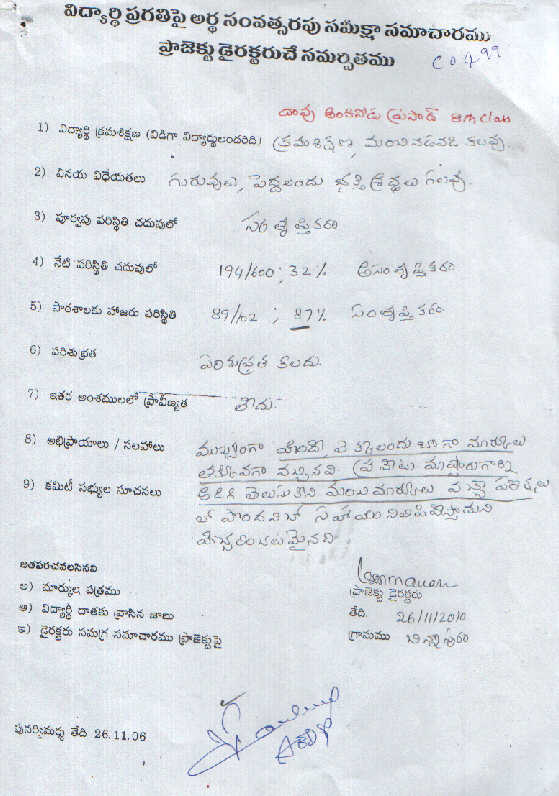 విద్యార్థి ప్రగతిపై అర్థ సంవత్సరపు సమీక్షా సమాచారము
ప్రాజెక్టు డైరక్టరుచే సమర్పితము
C0499
ప్రసాద్ 8th class
1) విద్యార్థి క్రమశిక్షణ (విడిగా విద్యార్థులందరిది) క్రమశిక్షణ, మంచినడవడి కలవు.
2) వినయ విధేయతలు గురువులు, పెద్దలందు భక్తి శ్రద్ధలు గలవు.
3) పూర్వపు పరిస్థితి చదువులో
4) నేటి పరిస్థితి చదువులో 194/600 ; 32% అసంతృప్తికరం
5) పాఠశాలకు హాజరు పరిస్థితి 89/102 ; 87% సంతృప్తికరం
6) పరిశుభ్రత పరిశుభ్రత కలదు.
7) ఇతర అంశములలో ప్రావీణ్యత లేదు.
8) అభిప్రాయాలు / సలహాలు ముఖ్యంగా హిందీ, లెక్కలందు బాగా మార్కులు
తక్కువగా వచ్చినవి.
9) కమిటీ సభ్యుల సూచనలు అడిగి తెలుసుకొని మంచి మార్కులు వచ్చే పరీక్షలు
లో పొందుటకు సహాయం
జతపరచవలసినవి
అ) మార్కుల పత్రము
ఆ) విద్యార్థి దాతకు వ్రాసిన జాబు
ఇ) డైరక్టరు సమగ్ర సమాచారము ప్రాజెక్టుపై
ప్రాజెక్టు డైరక్టరు
తేది. 26/11/2010
గ్రామము
పునర్విమర్శ తేది 26.11.06